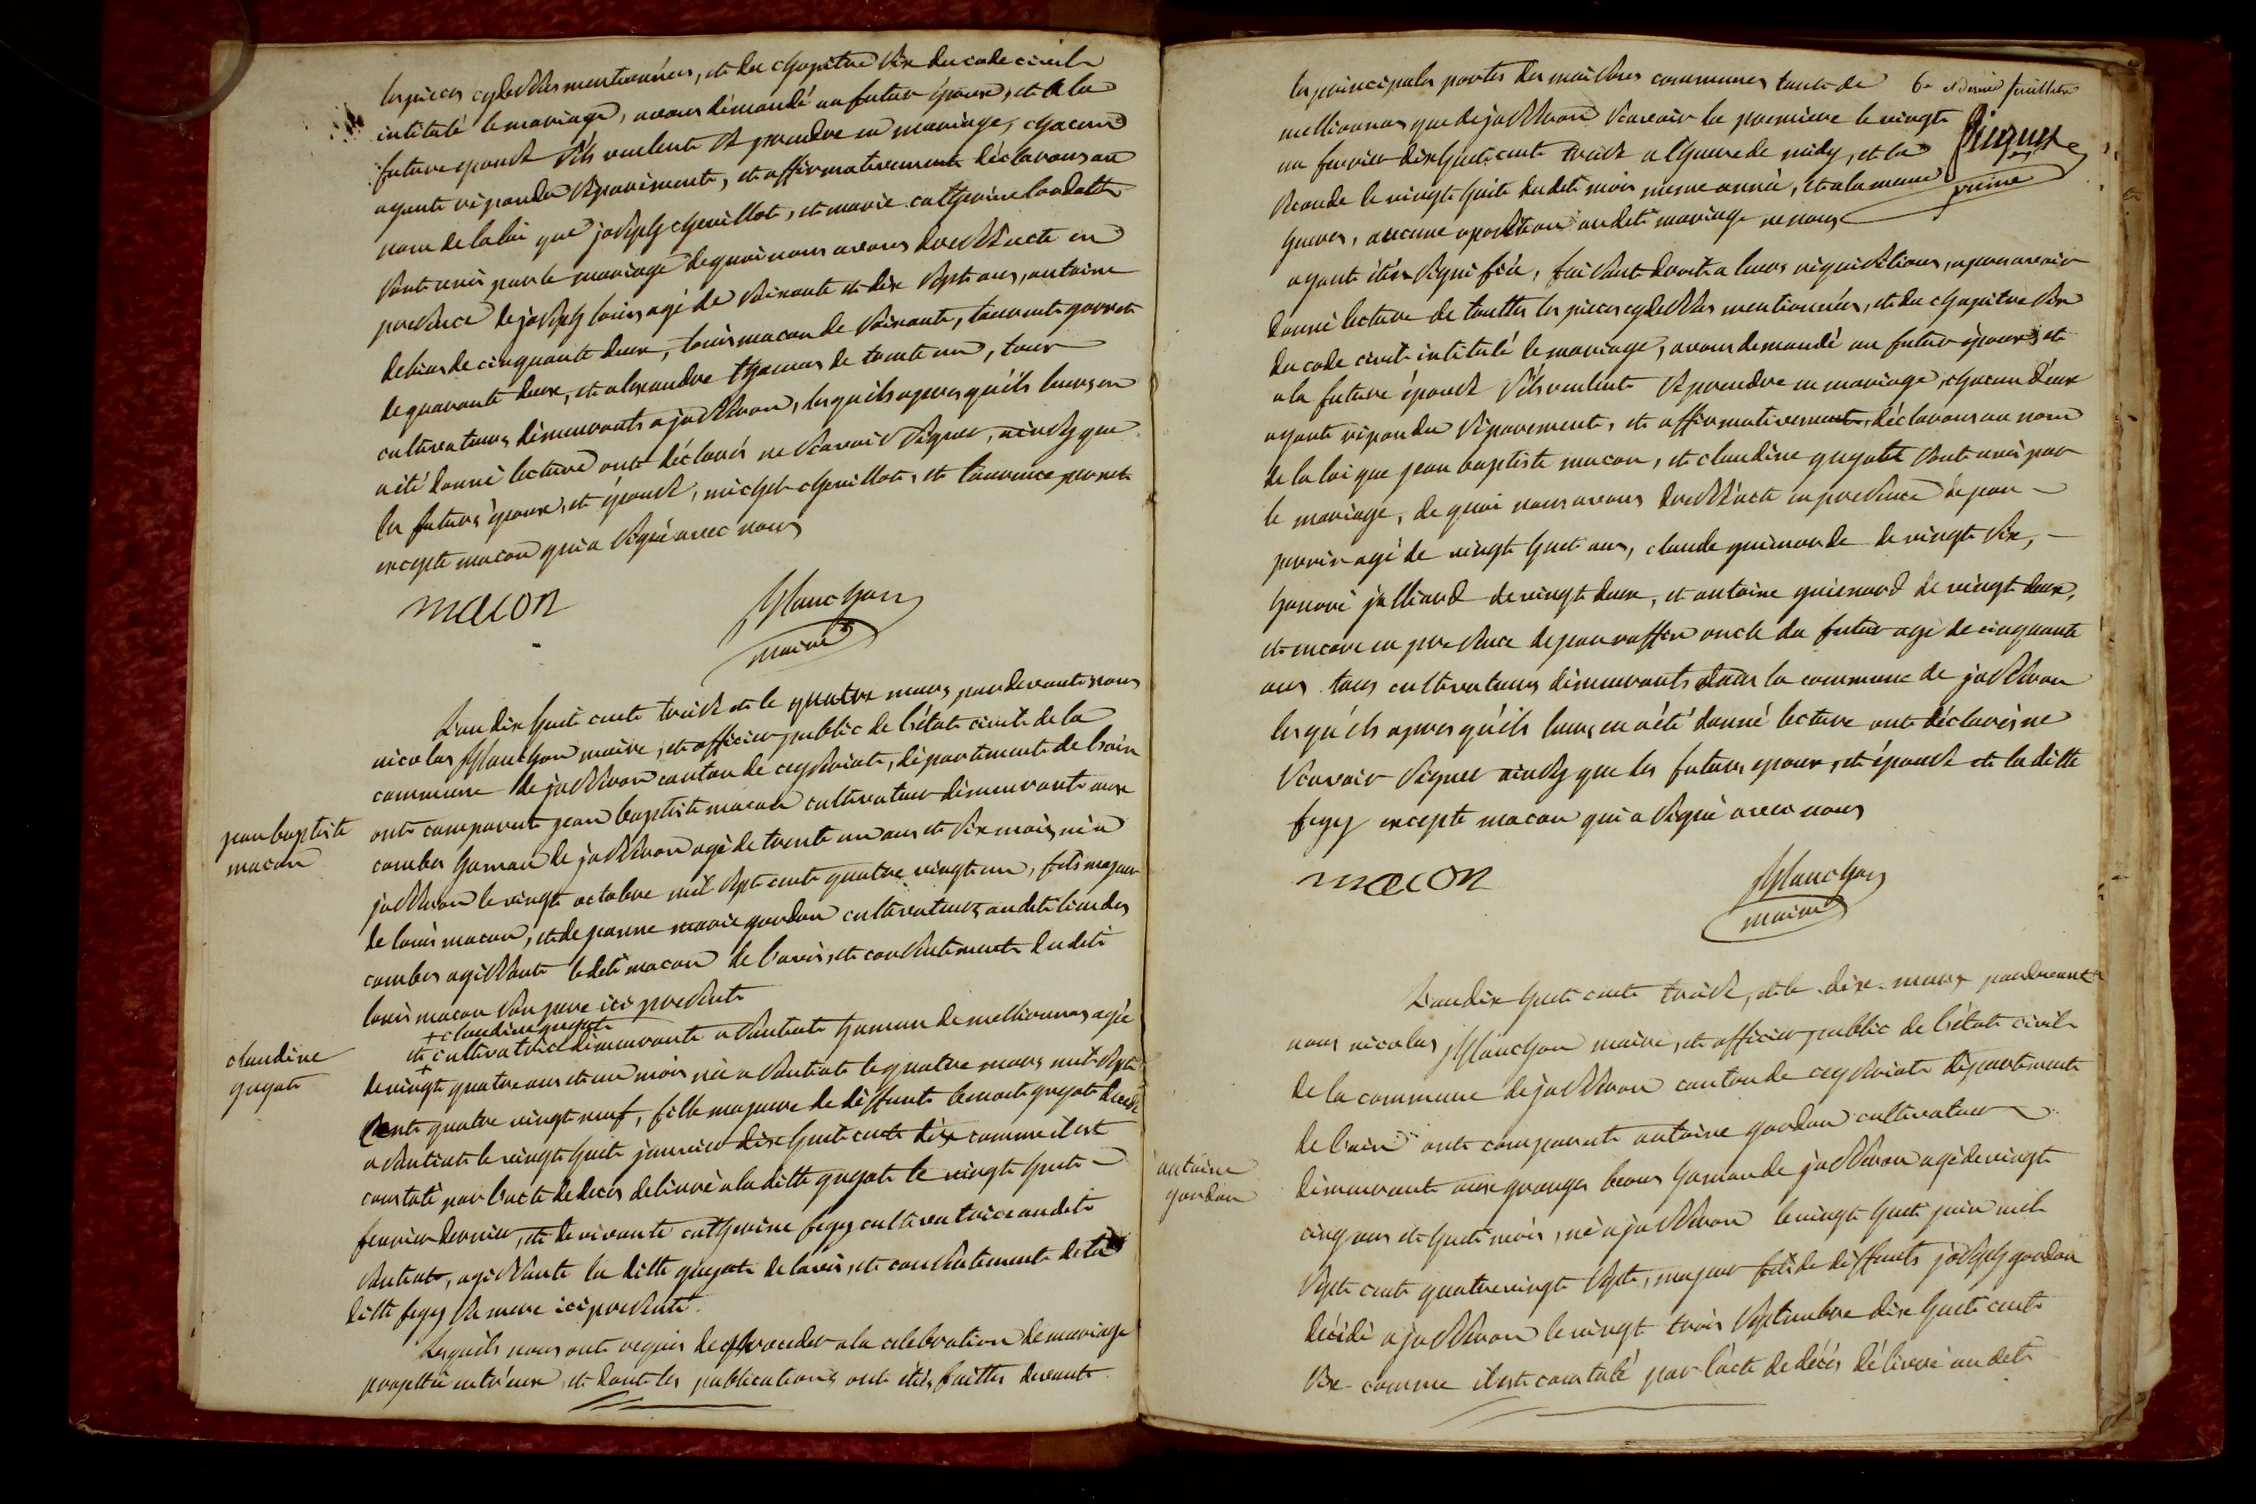 les pieces cydessus mentionnées, et du chapitre six du code civil
intitulé le mariage, avons demandé au futur époux, et a la
future epouse s'ils veulent se prendre en mariage, chacun
ayant répondu séparément, et affirmativement déclarons au
nom de la loi que joseph chevillot, et marie catherine
sont unis par le mariage de quoi nous avons dressé acte en
presence de joseph louis agé de soixante et dix sept ans, antoine
de cinquante deux, louis macon de soixante, laurent
de quarante deux, et alexandre thomas de trente un, tous
cultivateurs demeurants a jasseron, lesquels apres qu'ils leurs en
a été donné lecture ont déclarés ne scavoir signer, ainsy que
les futurs époux, et épouse, michel chevillot, et laurence
excepté macon qui a signé avec nous
macon
planchon
maire
L'an dix huit cent treize et le quatre mars pardevant nous
nicolas planchon maire, et officier public de l'état civil de la
commune de jasseron canton de ceyzeriat, département de l'ain
jean baptiste
macon
ont comparut jean baptiste macon cultivateur demeurant aux
combes hameau de jasseron agé de trente un ans et six mois, né a
jasseron le vingt octobre mil sept cent quatre vingt un, fils majeur
de louis macon, et de jeanne marie gordon cultivateurs audit lieu des
combes agissant ledit macon de l'avis, et consentement dudit
louis macon son pere ici present
+ claudine guyot
claudine
guyot
et + cultivatrice demeurante a santiat hameau de mellionnas agée
de vingt quatre ans et un mois née a santiat le quatre mars mil sept
cent quatre vingt neuf, fille majeure de deffunt benoit guyot décédé
a santiat le vingt huit janvier dix huit cent dix comme il est
constaté par l'acte de deces délivré a la ditte guyot le vingt huit
fevrier dernier, et de vivante catherine fegey cultivatrice audit
santiat, agissante la ditte guyot de l'avis, et consentement de la
ditte fegey sa mere ici presente.
Lesquels nous ont requis de proceder a la celebration de mariage
projetté entr'eux, et dont les publications ont étés faittes devant
les principales portes des maisons communes tant de
mellionnas que de jasseron scavoir la premiere le vingt
un fevrier dix huit cent treize a l'heure de midy, et la
seconde le vingt huit dudit mois meme année, et a la meme
heures, aucune oposition audit mariage ne nous
6e et dernier feuillet
ayant étés signifiée, faisant droit a leurs réquisitions, apres avoir
donné lecture de touttes les pieces cydessus mentionnées, et du chapitre six
du code civil intitulé le mariage, avons demandé au futur époux, et
a la future épouse s'ils veulent se prendre en mariage, chacun d'eux
ayant répondu séparement, et affirmativement, déclarons au nom
de la loi que jean baptiste macon, et claudine guyot sont unis par
le mariage, de quoi nous avons dressé acte en presence de jean
perrin agé de vingt huit ans, claude de vingt six,
honoré de vingt deux, et antoine de vingt deux,
et encore en presence de jean oncle du futur agé de cinquante
ans tous cultivateurs demeurants dans la commune de jasseron
lesquels apres qu'ils leurs en a été donné lecture ont déclarés ne
scavoir signer ainsy que les futurs epoux, et épouse et la ditte
fegey excepté macon qui a signé avec nous
macon
planchon
maire
L'an dix huit cent treize, et le dix mars pardevant
nous nicolas planchon maire, et officier public de l'état civil
de la commune de jasseron canton de ceyzeriat département
de l'ain ont comparut antoine gordon cultivateur
antoine
gordon
demeurant aux granges hameau de jasseron agé de vingt
cinq ans et huit mois, né a jasseron le vingt huit juin mil
sept cent quatre vingt sept, majeur fils de deffunts joseph gordon
décédé a jasseron le vingt trois septembre dix huit cent
six comme il est constaté par l'acte de décés délivré audit